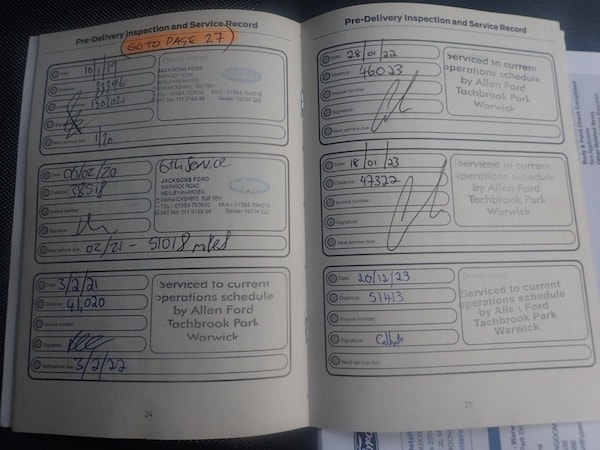 Pre-Delivery Inspection and Service Record
GO TO PAGE 27
Date: 10/1/19
33396
1302021
Next service due: 1/20
JACKSONS FORD
WARWICK ROAD
HENLEY-IN-ARDEN
WARWICKSHIRE B95 5BH
Date: 06/02/20
Distance: 38518
Invoice number:
Signature:
Next service due: 02/21 - 51018 miles
6th Service
JACKSONS FORD
WARWICK ROAD
HENLEY-IN-ARDEN
WARWICKSHIRE B95 5BH
Date: 3/2/21
Distance: 41,020
Invoice number:
Signature:
Next service due: 3/2/22
Serviced to current
operations schedule
by Allen Ford
Tachbrook Park
Warwick
24
Pre-Delivery Inspection and Service Record
Date: 28/01/22
Distance: 46023
Invoice number:
Signature:
Next service due:
Serviced to current
operations schedule
by Allen Ford
Tachbrook Park
Warwick
Date: 18/01/23
Distance: 47322
Invoice number:
Signature:
Next service due:
Serviced to current
operations schedule
by Allen Ford
Tachbrook Park
Warwick
Date: 20/12/23
Distance: 51413
Invoice number:
Signature:
Next service due:
Serviced to current
operations schedule
by Allen Ford
Tachbrook Park
Warwick
25